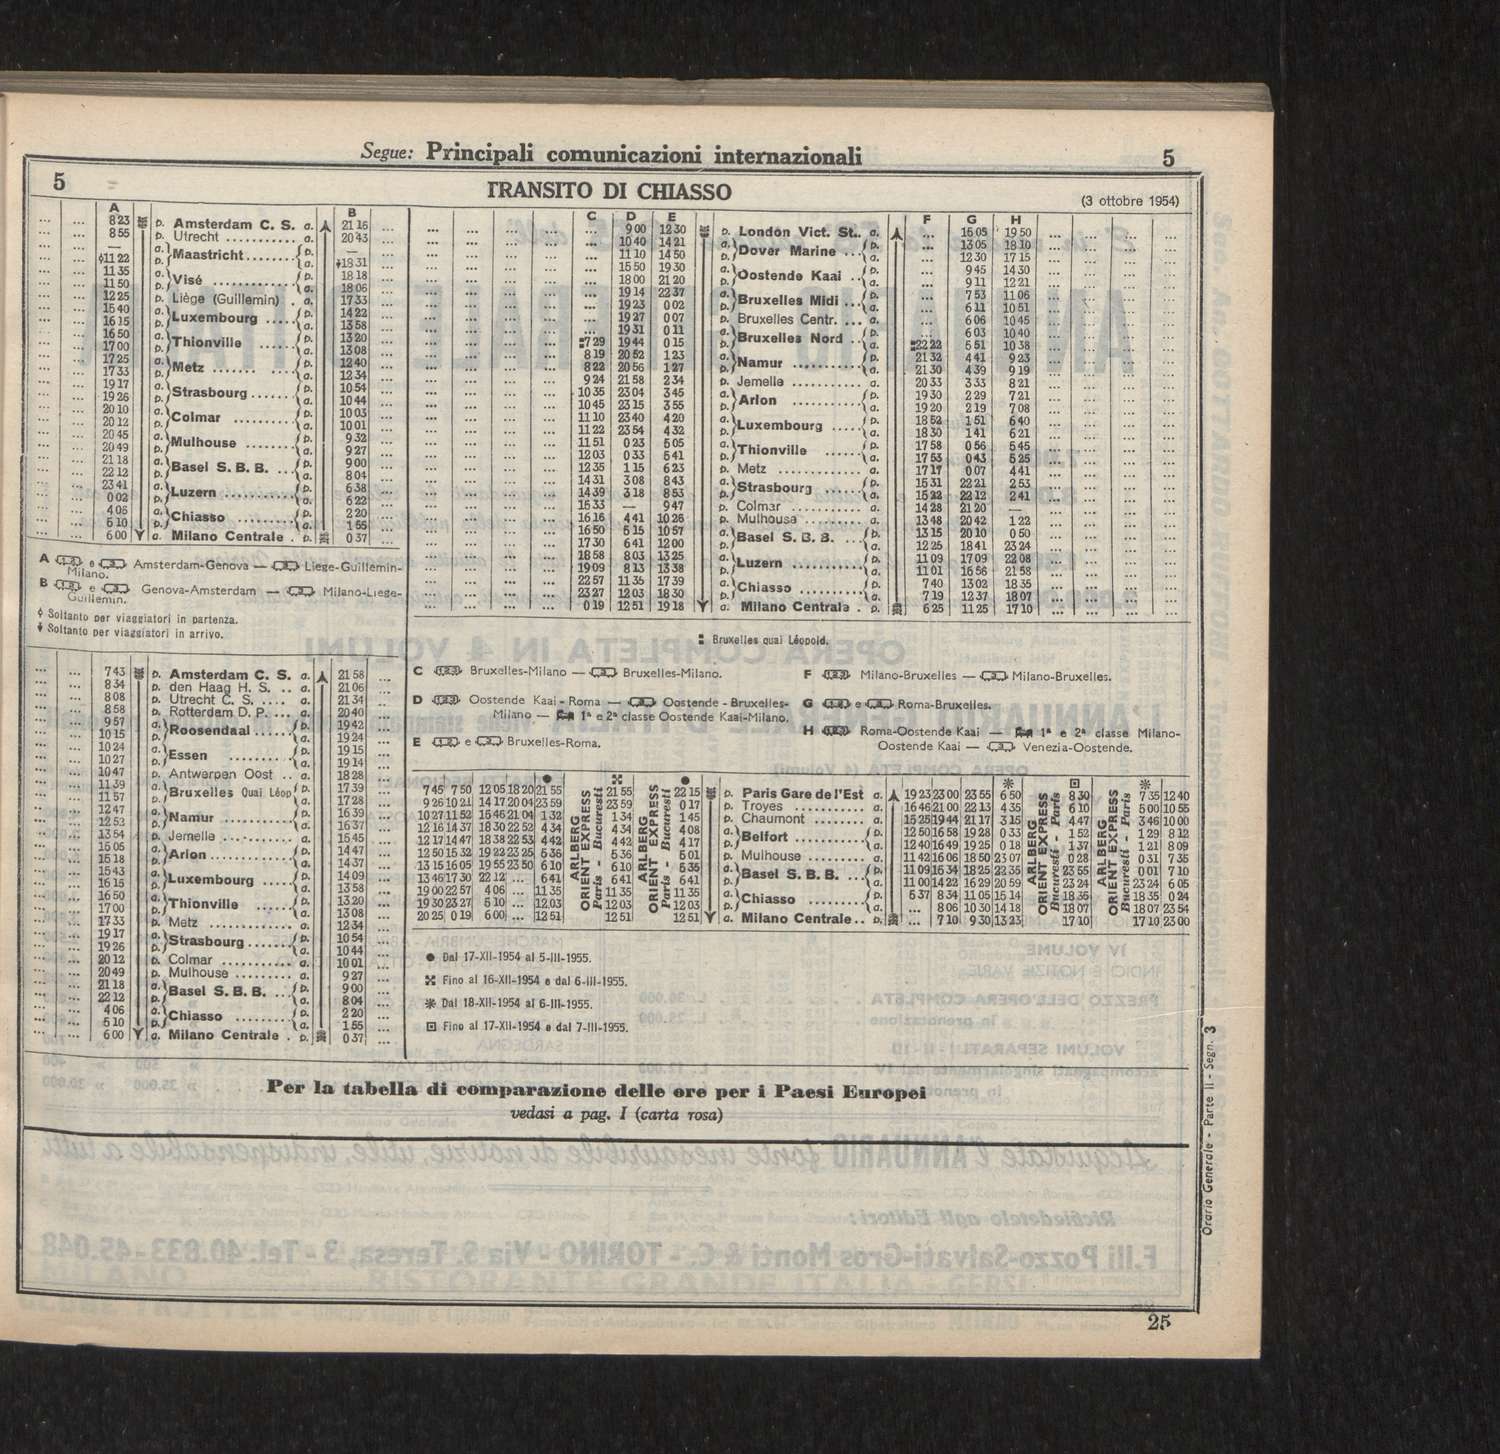 Segue: Principali comunicazioni internazionali 5
5 TRANSITO DI CHIASSO (3 ottobre 1954)
A B
8 23 p. Amsterdam C. S. a. 21 16
8 55 p. Utrecht a. 20 43
— a. Maastricht p.
11 22 p. a. 18 31
11 35 a. Visé p. 18 18
11 50 p. a. 18 06
12 25 p. Liège (Guillemin) a. 17 33
15 40 a. Luxembourg p. 14 22
16 15 p. a. 13 58
16 50 a. Thionville p. 13 20
17 00 p. a. 13 08
17 25 a. Metz p. 12 40
17 33 p. a. 12 34
19 17 a. Strasbourg p. 10 54
19 26 p. a. 10 44
20 10 a. Colmar p. 10 03
20 12 p. a. 10 01
20 45 a. Mulhouse p. 9 32
20 49 p. a. 9 27
21 18 a. Basel S. B. B. p. 9 00
22 12 p. a. 8 04
23 41 a. Luzern p. 6 38
0 02 p. a. 6 22
4 06 a. Chiasso p. 2 20
5 10 p. a. 1 55
6 00 a. Milano Centrale p. 0 37
A e Amsterdam-Genova — Liege-Guillemin-
Milano.
B e Genova-Amsterdam — Milano-Liege-
Guillemin.
Soltanto per viaggiatori in partenza.
Soltanto per viaggiatori in arrivo.
7 43 p. Amsterdam C. S. a. 21 58
8 34 p. den Haag H. S. a. 21 06
8 08 p. Utrecht C. S. a. 21 34
8 58 p. Rotterdam D. P. a. 20 40
9 57 a. Roosendaal p. 19 42
10 15 p. a. 19 24
10 24 a. Essen p. 19 15
10 27 p. a. 19 14
10 47 p. Antwerpen Oost a. 18 28
11 39 a. Bruxelles Quai Léop p. 17 39
11 57 p. a. 17 28
12 47 a. Namur p. 16 39
12 53 p. a. 16 37
13 54 p. Jemelle a. 15 45
15 05 a. Arlon p. 14 47
15 18 p. a. 14 37
15 43 a. Luxembourg p. 14 09
16 15 p. a. 13 58
16 50 a. Thionville p. 13 20
17 00 p. a. 13 08
17 33 p. Metz a. 12 34
19 17 a. Strasbourg p. 10 54
19 26 p. a. 10 44
20 12 p. Colmar a. 10 01
20 49 p. Mulhouse a. 9 27
21 18 a. Basel S. B. B. p. 9 00
22 12 p. a. 8 04
4 06 a. Chiasso p. 2 20
5 10 p. a. 1 55
6 00 a. Milano Centrale p. 0 37
C D E F G H
... 9 00 12 30 p. London Vict. St. a. ... 16 05 19 50
... 10 40 14 21 a. Dover Marine p. ... 13 05 18 10
... 11 10 14 50 p. a. ... 12 30 17 15
... 15 50 19 30 a. Oostende Kaai p. ... 9 45 14 30
... 18 00 21 20 p. a. ... 9 11 12 21
... 19 14 22 37 a. Bruxelles Midi p. ... 7 53 11 06
... 19 23 0 02 p. a. ... 6 11 10 51
... 19 27 0 07 p. Bruxelles Centr. a. ... 6 06 10 45
... 19 31 0 11 a. Bruxelles Nord p. ... 6 03 10 40
7 29 19 44 0 15 p. a. 22 22 5 51 10 38
8 19 20 52 1 23 a. Namur p. 21 32 4 41 9 23
8 22 20 56 1 27 p. a. 21 30 4 39 9 19
9 24 21 58 2 34 p. Jemelle a. 20 33 3 33 8 21
10 35 23 04 3 45 a. Arlon p. 19 30 2 29 7 21
10 45 23 15 3 55 p. a. 19 20 2 19 7 08
11 10 23 40 4 20 a. Luxembourg p. 18 52 1 51 6 40
11 22 23 54 4 32 p. a. 18 30 1 41 6 21
11 51 0 23 5 05 a. Thionville p. 17 58 0 56 5 45
12 03 0 33 5 41 p. a. 17 53 0 43 5 25
12 35 1 15 6 23 p. Metz a. 17 17 0 07 4 41
14 31 3 08 8 43 a. Strasbourg p. 15 31 22 21 2 53
14 39 3 18 8 53 p. a. 15 22 22 12 2 41
15 33 — 9 47 p. Colmar a. 14 28 21 20 —
16 16 4 41 10 26 p. Mulhouse a. 13 48 20 42 1 22
16 50 5 15 10 57 a. Basel S. B. B. p. 13 15 20 10 0 50
17 30 6 41 12 00 p. a. 12 25 18 41 23 24
18 58 8 03 13 25 a. Luzern p. 11 09 17 09 22 08
19 09 8 13 13 38 p. a. 11 01 16 56 21 58
22 57 11 35 17 39 a. Chiasso p. 7 40 13 02 18 35
23 27 12 03 18 30 p. a. 7 19 12 37 18 07
0 19 12 51 19 18 a. Milano Centrale p. 6 25 11 25 17 10
Bruxelles quai Léopold.
C Bruxelles-Milano — Bruxelles-Milano.
D Oostende Kaai - Roma — Oostende - Bruxelles-
Milano — 1ª e 2ª classe Oostende Kaai-Milano.
E e Bruxelles-Roma.
F Milano-Bruxelles — Milano-Bruxelles.
G e Roma-Bruxelles.
H Roma-Oostende Kaai — 1ª e 2ª classe Milano-
Oostende Kaai — Venezia-Oostende.
7 45 7 50 12 05 18 20 21 55 ARLBERG ORIENT EXPRESS Paris - Bucuresti 21 55 ARLBERG ORIENT EXPRESS Paris - Bucuresti 22 15 p. Paris Gare de l'Est a. 19 23 23 00 23 55 6 50 ARLBERG ORIENT EXPRESS Bucuresti - Paris 8 30 ARLBERG ORIENT EXPRESS Bucuresti - Paris 7 35 12 40
9 26 10 21 14 17 20 04 23 59 23 59 0 17 p. Troyes a. 16 46 21 00 22 13 4 35 6 10 5 00 10 55
10 27 11 52 15 46 21 04 1 32 1 34 1 45 p. Chaumont a. 15 25 19 44 21 17 3 15 4 47 3 46 10 00
12 16 14 37 18 30 22 52 4 34 4 34 4 08 a. Belfort p. 12 50 16 58 19 28 0 33 1 52 1 29 8 12
12 17 14 47 18 38 22 53 4 42 4 42 4 17 p. a. 12 40 16 49 19 25 0 18 1 37 1 21 8 09
12 50 15 32 19 22 23 25 5 36 5 36 5 01 p. Mulhouse a. 11 42 16 06 18 50 23 07 0 28 0 31 7 35
13 15 16 05 19 55 23 50 6 10 6 10 5 35 a. Basel S. B. B. p. 11 09 15 34 18 25 22 35 23 55 0 01 7 10
13 46 17 30 22 12 ... 6 41 6 41 6 41 p. a. 11 00 14 22 16 29 20 59 23 24 23 24 6 05
19 00 22 57 4 06 ... 11 35 11 35 11 35 a. Chiasso p. 6 37 8 34 11 05 15 14 18 35 18 35 0 24
19 30 23 27 5 10 ... 12 03 12 03 12 03 p. a. ... 8 06 10 30 14 18 18 07 18 07 23 54
20 25 0 19 6 00 ... 12 51 12 51 12 51 a. Milano Centrale p. ... 7 10 9 30 13 23 17 10 17 10 23 00
● Dal 17-XII-1954 al 5-III-1955.
Fino al 16-XII-1954 e dal 6-III-1955.
Dal 18-XII-1954 al 6-III-1955.
Fino al 17-XII-1954 e dal 7-III-1955.
Per la tabella di comparazione delle ore per i Paesi Europei
vedasi a pag. I (carta rosa)
Orario Generale - Parte II - Segn. 3
25